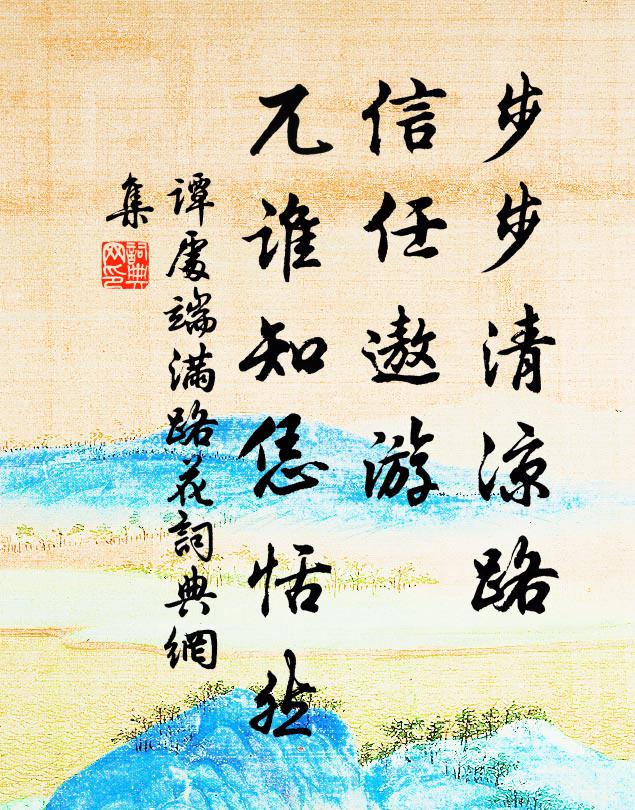 步步清涼路
信任遨游
兀誰知恁恬然
譚處端滿路花詞典網
集
詞典网印